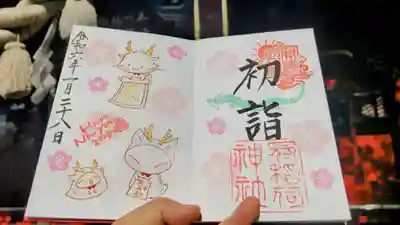 初詣
神社
令和六年一月二十八日